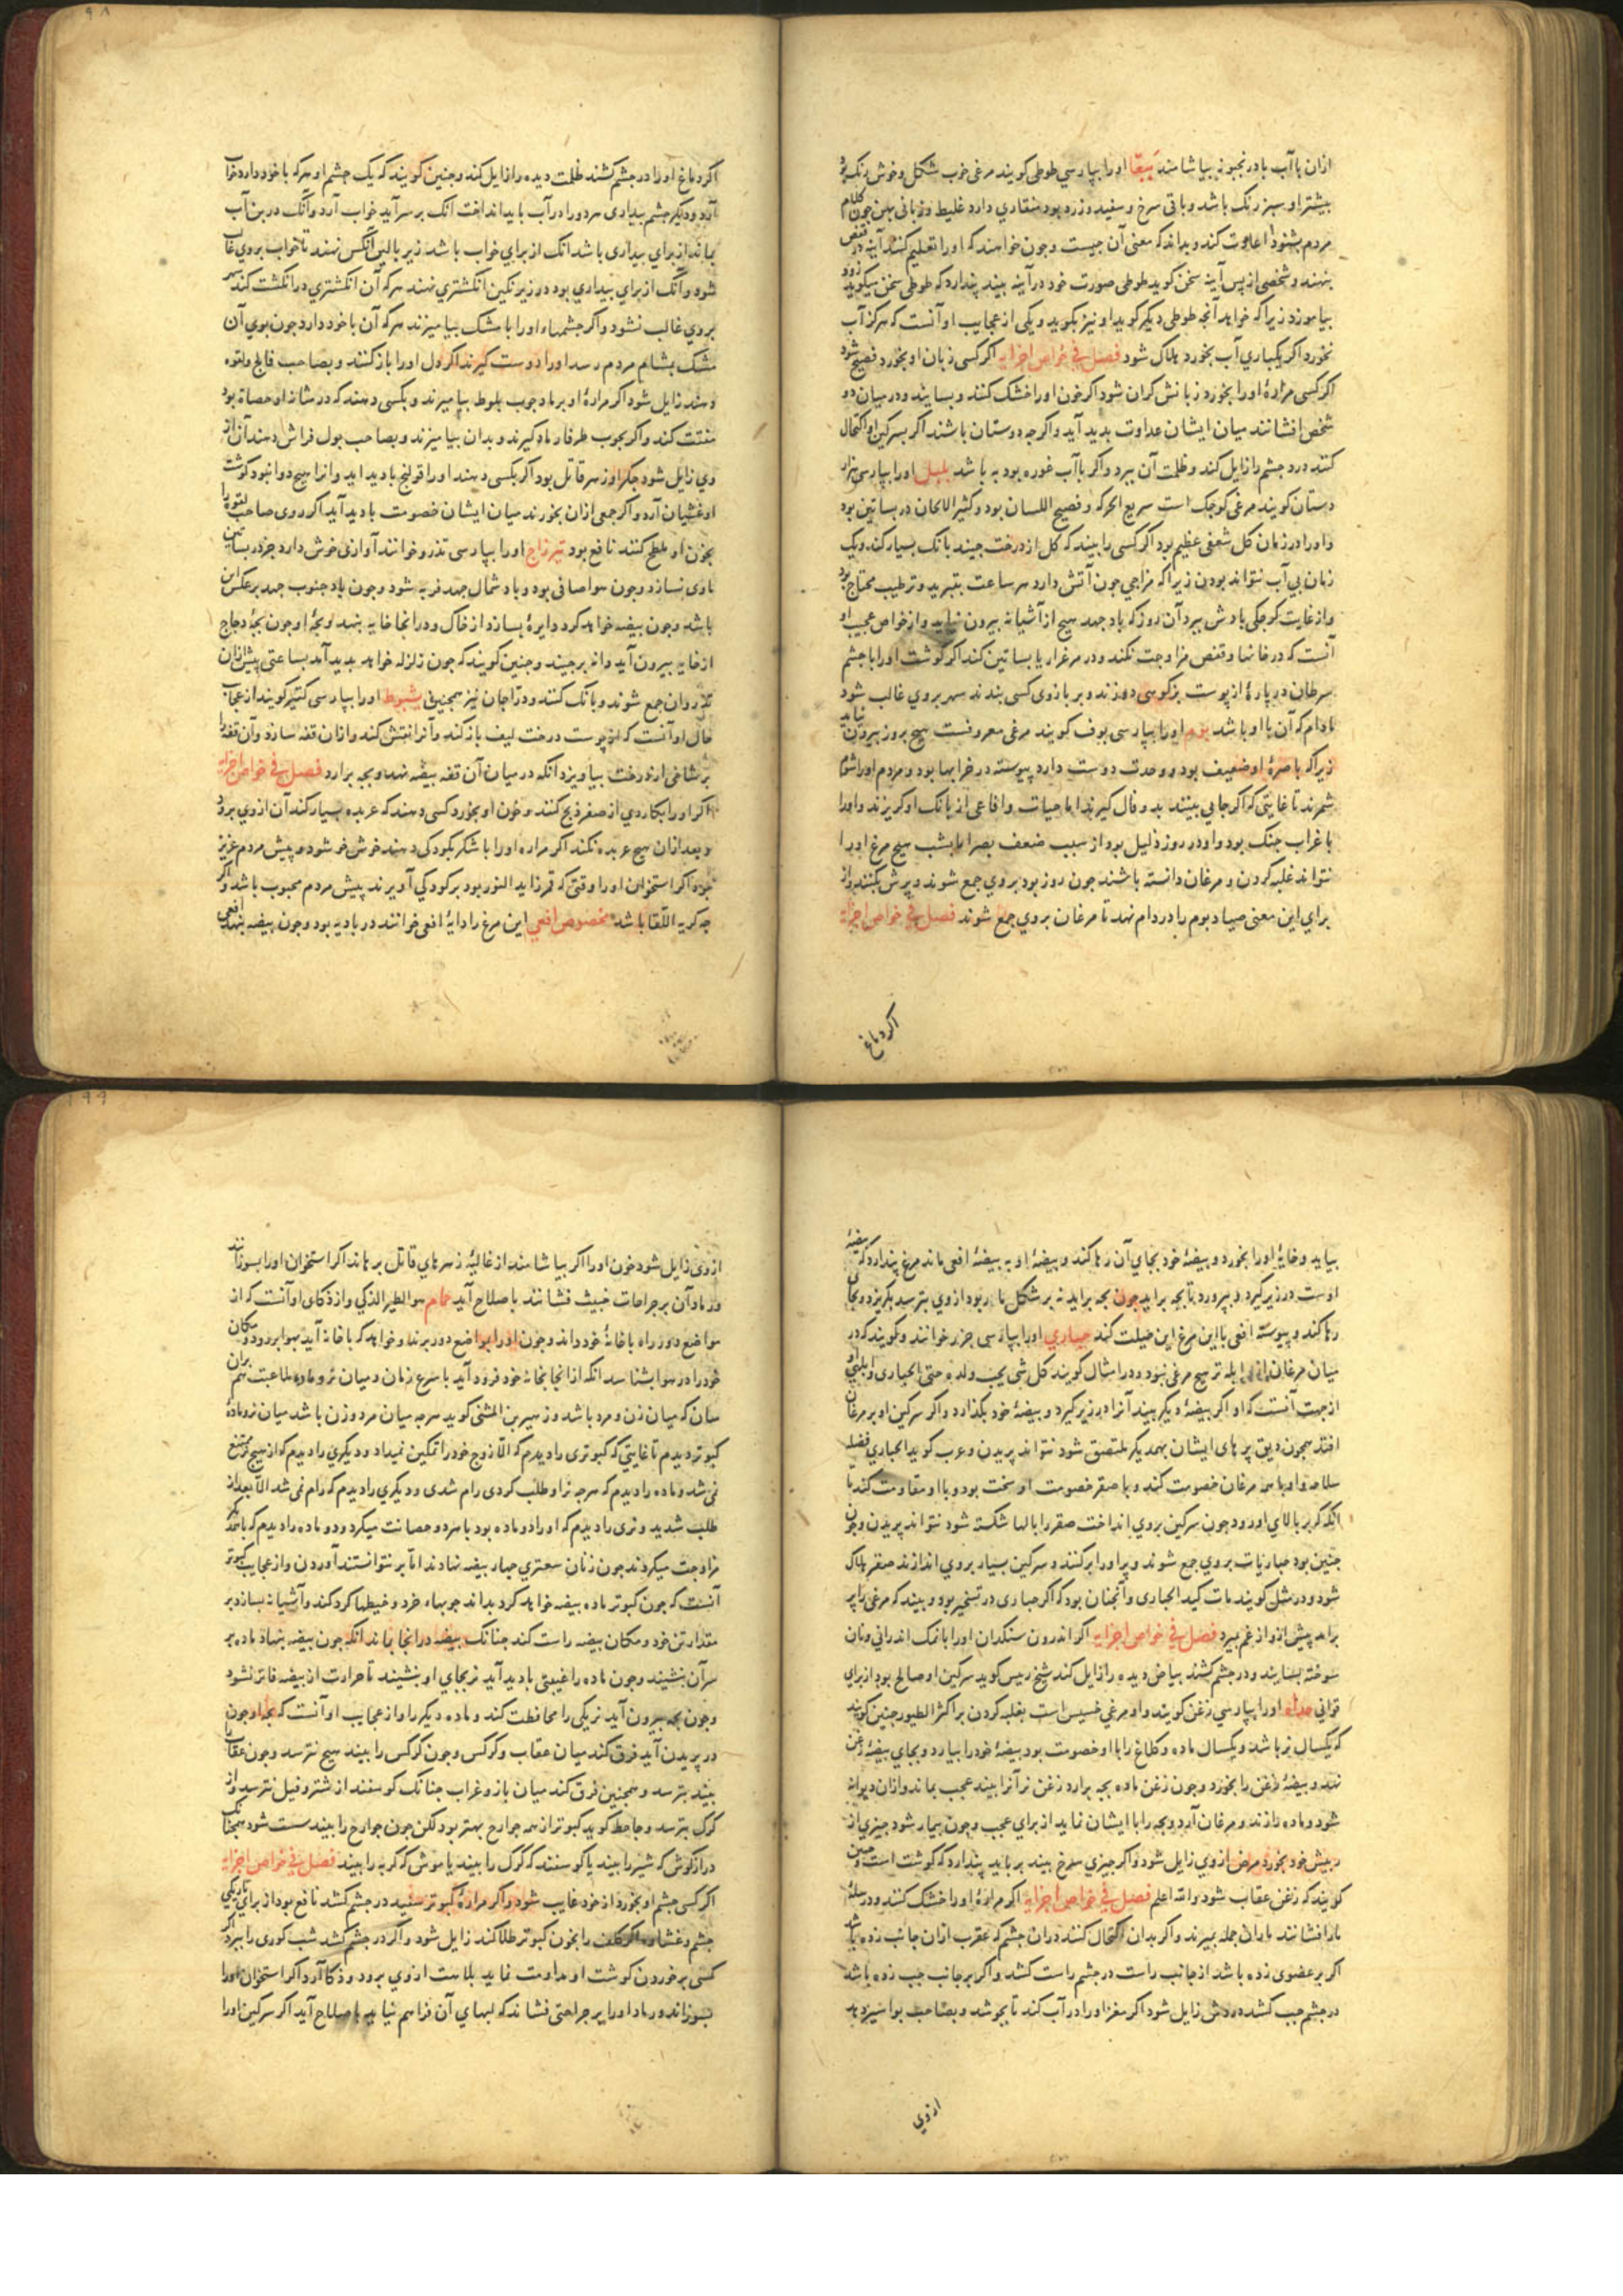 ازان با آب بادرنجبویه بیاشامند ببغا اورا بپارسی طوطی کویند مرغی خوب شکل وخوش رنک بود
بیشتر او سبز رنک باشد وباقی سرخ وسفید وزرد بود منقاری دارد غلیظ وزبانی پهن چون کلام
مردم بشنود اعادت کند وبداند که معنی آن چیست وچون خواهند که اورا تعلیم کنند آینه در قفص
بنهند وشخصی از پس آینه سخن کوید طوطی صورت خود در آینه بیند پندارد که طوطی سخن میکوید زود
بیاموزد زیرا که خواهد آنچه طوطی دیکر کوید او نیز بکوید ویکی از عجایب او آنست که هرکز آب
نخورد اکر یکباری آب بخورد هلاک شود فصل فی خواص اجزایه اکر کسی زبان او بخورد فصیح شود
اکر کسی مرارۀ اورا بخورد زبانش کران شود اکر خون اورا خشک کنند وبسایند ودر میان دو
شخص افشانند میان ایشان عداوت بدید آید واکرچه دوستان باشند اکر بسرکین او اکتحال
کنند درد چشم را زایل کند وظلمت آن ببرد واکر با آب غوره بود به باشد بلبل اورا بپارسی هزار
دستان کویند مرغی کوچک است سریع الحرکه وفصیح اللسان بود وکثیر الالحان در بساتین بود
واورا در زمان کل شغفی عظیم بود اکر کسی را بیند که کل از درخت چیند بانک بسیار کند ویک
زمان بی آب نتواند بودن زیرا که مزاجی چون آتش دارد هر ساعت بتبرید وترطیب محتاج بود
واز غایت کوچکی بادش ببرد آن روز که باد جهد هیچ از آشیانه بیرون نیاید واز خواص عجیب او
آنست که در خانها وقفص مزاوجت نکند ودر مرغزار یا بساتین کند اکر کوشت اورا با چشم
سرطان در پارۀ از پوست بزکوهی دوزند وبر بازوی کسی بندند سهر بروی غالب شود
مادام که آن با او باشد بوم اورا بپارسی بوف کویند مرغی معروفست هیچ بروز بیرون نیاید
زیرا که باصرۀ او ضعیف بود ووحدت دوست دارد پیوسته در خرابها بود ومردم اورا شوم
شمرند تا غایتی که اکر جایی بینند بد وفال کیرند اما حیات وافاعی از بانک او کریزند واورا
با غراب جنک بود واو در روز ذلیل بود از سبب ضعف بصر اما بشب هیچ مرغ اورا
نتواند غلبه کردن ومرغان دانسته باشند چون روز بود بروی جمع شوند وپرش بکنند واز
برای این معنی صیاد بوم را در دام نهد تا مرغان بروی جمع شوند فصل فی خواص اجزایه
اکر دماغ
اکر دماغ اورا در چشم کشند ظلمت دیده را زایل کند وچنین کویند که یک چشم او هرکه با خود دارد خواب
آرد ودیکر چشم بیداری هر دو را در آب باید انداخت آنک بر سر آید خواب آرد وآنک در بن آب
بماند از برای بیداری باشد آنک از برای خواب باشد زیر بالین آنکس نهند تا خواب بروی غالب
شود وآنک از برای بیداری بود در زیر نکین انکشتری نهند هرکه آن انکشتری در انکشت کند سهر
بروی غالب نشود واکر چشمهاء اورا با مشک بیامیزند هرکه آن با خود دارد چون بوی آن
مشک بمشام مردم رسد اورا دوست کیرند اکر دل اورا باز کنند وبصاحب فالج ولقوه
دهند زایل شود اکر مرارۀ او برماد چوب بلوط بیامیزند وبکسی دهند که در مثانه او حصاة بود
مفتت کند واکر بچوب طرفا رماد کیرند وبدان بیامیزند وبصاحب بول فراش دهند آن از
وی زایل شود جکر او زهر قاتل بود اکر بکسی دهند اورا قولنج بادید اید وانرا هیچ دوا نبود کوشت
او غثیان آرد واکر جمعی ازان بخورند میان ایشان خصومت بادید آید اکر روی صاحب لقوه را
بخون او طلح کنند نافع بود تدرج اورا بپارسی تذرو خوانند آوازی خوش دارد جز در بساتین
ماوی نسازد وچون هوا صافی بود وباد شمال جهد فربه شود وچون باد جنوب جهد برعکس این
باشد وچون بیضه خواهد کرد دایرۀ بسازد از خاک ودرانجا خایه بنهد وبچۀ او چون بچۀ دجاج
از خایه بیرون آید ودانه برچیند وچنین کویند که چون زلزله خواهد بدید آمد بساعتی پیش ازان
تذروان جمع شوند وبانک کنند ودراجان نیز همچنین تنوط اورا بپارسی کنیر کویند از عجایب
حال او آنست که از پوست درخت لیف باز کند وآنرا نتش کند وازان قفه سازد وآن قفه را
بر شاخی از درخت بیاویزد آنکه در میان آن قفه بیضه نهد وبچه برارد فصل فی خواص اجزایه
اکر اورا بکاردی از صفر ذبح کنند وخون او بخورد کسی دهند که عربده بسیار کند آن ازوی برود
وبعد ازان هیچ عربده نکند اکر مراره اورا با شکر بکودکی دهند خوش خو شود وپیش مردم عزیز
بود اکر استخوان اورا وقتی که قمر زاید النور بود بر کودکی آویزند پیش مردم محبوب باشد واکر
چه کریه اللقا باشد مخصوص افعی این مرغ را دایۀ افعی خوانند در بادیه بود وچون بیضه بنهد افعی
بیاید وخایۀ اورا بخورد وبیضۀ خود بجای آن رها کند وبیضۀ او به بیضۀ افعی ماند مرغ پندارد که بیضۀ
اوست در زیر کیرد وبپرورد تا بچه براید چون بچه براید نه بر شکل مادر بود ازوی بترسد بکریزد وبجای
رها کند وپیوسته افعی با این مرغ این خیلت کند حباری اورا بپارسی چرز خوانند وکویند که در
میان مرغان ازو ابله تر هیچ مرغی نبود ودر امثال کویند کل شی یحب ولده حتی الحباری وابلهی او
از جهت آنست که او اکر بیضۀ دیکر بیند آنرا در زیر کیرد وبیضۀ خود بکذارد واکر سرکین او بر مرغان
افتد همچون دبق پرهای ایشان بهمدیکر ملتصق شود نتواند پریدن وعرب کوید الحباری فضله
سلاحه واو باهمه مرغان خصومت کند وبا صقر خصومت او سخت بود وبا او مقاومت کند تا
آنکه که بر بالای او رود چون سرکین بروی انداخت صقر را بالها شکسته شود نتواند پریدن وچون
چنین بود حباریات بروی جمع شوند وپر اورا بر کنند وسرکین بسیار بروی اندازند صقر هلاک
شود ودر مثل کویند مات کمد الحباری وآنچنان بود که اکر حباری در تسخیر بود وبیند که مرغی را پر
براید پیش ازو از غم بمیرد فصل فی خواص اجزایه اکر اندرون سنکدان اورا بانمک اندرانی ونان
سوخته بسایند ودر چشم کشند بیاض دیده را زایل کند شیخ رییس کوید سرکین او صالح بود از برای
قوانی حداه اورا بپارسی زغن کویند واو مرغی خسیس است بغلبه کردن بر اکثر الطیور چنین کویند
که یکسال نر باشد ویکسال ماده وکلاغ را با او خصومت بود بیضۀ خود را بیارد وبجای بیضۀ زغن
نهد وبیضۀ زغن را بخورد وچون زغن ماده بچه برارد زغن نر آنرا بیند عجب بماند وازان دیوانه
شود وماده را زند ومرغان آرد وبچه را با ایشان نماید از برای عجب وچون بیمار شود چیزی از
ریش خود بخورد مرض ازوی زایل شود واکر چیزی سرخ بیند برباید پندارد که کوشت است وچنین
کویند که زغن عقاب شود والله اعلم فصل فی خواص اجزایه اکر مرارۀ اورا خشک کنند ودر سلۀ
مار افشانند ماران جمله بمیرند واکر بدان اکتحال کنند دران چشم که عقرب ازان جانب زده باشد
اکر بر عضوی زده باشد از جانب راست در چشم راست کشد واکر بر جانب چپ زده باشد
در چشم چپ کشد دردش زایل شود اکر مغز اورا در آب کند تا بجوشد وبصاحب بواسیر دهد
ازوی
ازوی زایل شود خون اورا اکر بیاشامند از غالیۀ زهرهای قاتل برهاند اکر استخوان اورا بسوزانند
ورماد آن بر جراحات خبیث فشانند باصلاح آید حمام هو الطیر الذکی واز ذکای او آنست که از
مواضع دور راه با خانۀ خود داند وچون اورا بمواضع دور برند وخواهد که با خانه آید بهوا بر رود ومکان
خود را در هوا بشناسد آنکه از انجا بخانۀ خود فرود آید با سرع زمان ومیان نر وماده ملاعبت هم بران
سان که میان زن ومرد باشد وزهیر بن المثنی کوید هرچه میان مرد وزن باشد میان نر ومادۀ
کبوتر دیدم تا غایتی که کبوتری را دیدم که الا زوج خود را تمکین نمیداد ودیکری را دیدم که از هیچ نر ممتنع
نمی شد وماده را دیدم که هرچه نر او طلب کردی رام شدی ودیکری را دیدم که رام نمی شد الا بعد از
طلب شدید ونری را دیدم که اورا دو ماده بود با هر دو حصانت میکرد ودو ماده را دیدم که با همدیکر
مزاوجت میکردند چون زنان سعتری چهار بیضه نهادند اما بر نتوانستند آوردن واز عجایب کبوتر
آنست که چون کبوتر ماده بیضه خواهد کرد بداند چوبهاء خرد وخیطها کرد کند وآشیانه بسازد بر
مقدار تن خود ومکان بیضه راست کند چنانک بیضه درانجا بماند آنکه چون بیضه بنهاد ماده بر
سر آن بنشیند وچون ماده را غیبتی بادید آید نر بجای او بنشیند تا حرارت از بیضه فاتر نشود
وچون بچه بیرون آید نر یکی را محافظت کند وماده دیکر را واز عجایب او آنست که بچۀ او چون
در پریدن آید فرق کند میان عقاب وکرکس وچون کرکس را بیند هیچ نترسد وچون عقاب را
بیند بترسد وهمچنین فرق کند میان باز وغراب چنانک کوسفند از شتر وفیل نترسد واز
کرک بترسد وجاحظ کوید کبوتر از همه جوارح بهتر بود لکن چون جوارح را بیند سست شود همچنانک
درازکوش که شیر را بیند یا کوسفند که کرک را بیند یا موش که کربه را بیند فصل فی خواص اجزایه
اکر کسی چشم او بخورد از خود غایب شود واکر مرارۀ کبوتر سفید در چشم کشد نافع بود از برای تاریکی
چشم وغشاوه واکر کلف را بخون کبوتر طلا کند زایل شود واکر در چشم کشد شب کوری را ببرد اکر
کسی بر خوردن کوشت او مداومت نماید بلادت ازوی برود وذکا آرد اکر استخوان اورا
بسوزاند ورماد اورا بر جراحتی فشاند که لبهای آن فراهم نیاید باصلاح آید اکر سرکین اورا